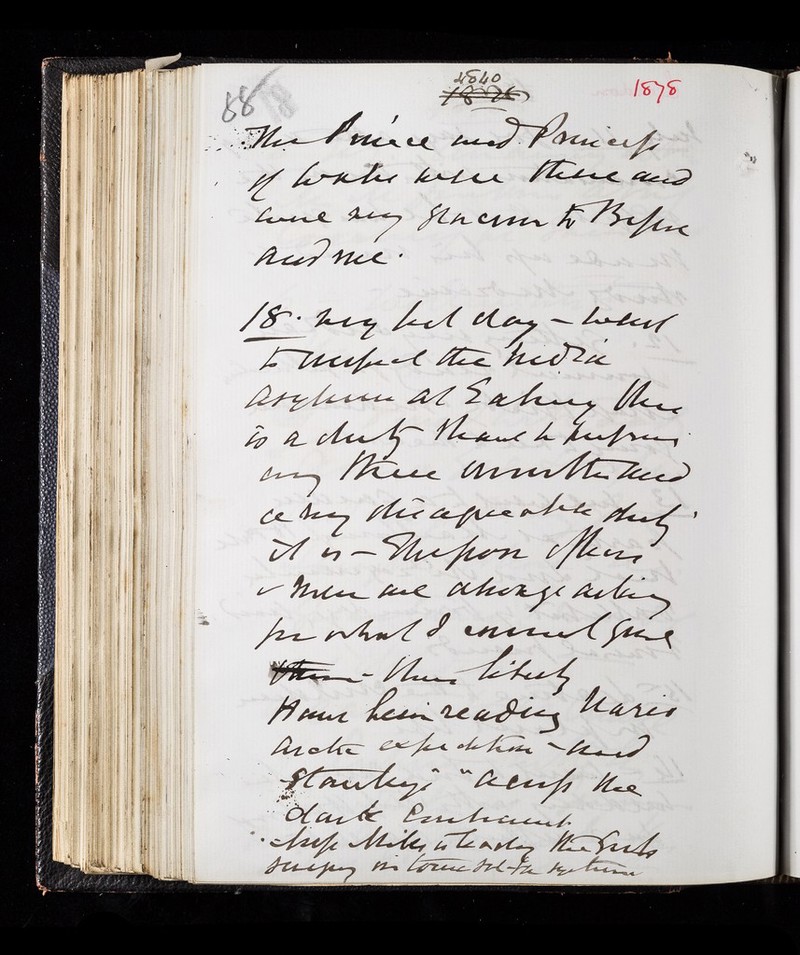 88
4840
1878
The Prince and Princess
of Wales were there and
were very gracious to Bessie
and me.
18. very hot day – went
to inspect the India
Asylum at Ealing this
is a duty I have to perform
every three months and
a very disagreeable duty
it is – These poor officers
& men are always asking
for what I cannot give
them – their liberty
Have been reading Nares
Arctic expedition – and
Stanley's "across the
dark continent.
Miss Miller is teaching the Girls
singing on Tonic Sol-fa system